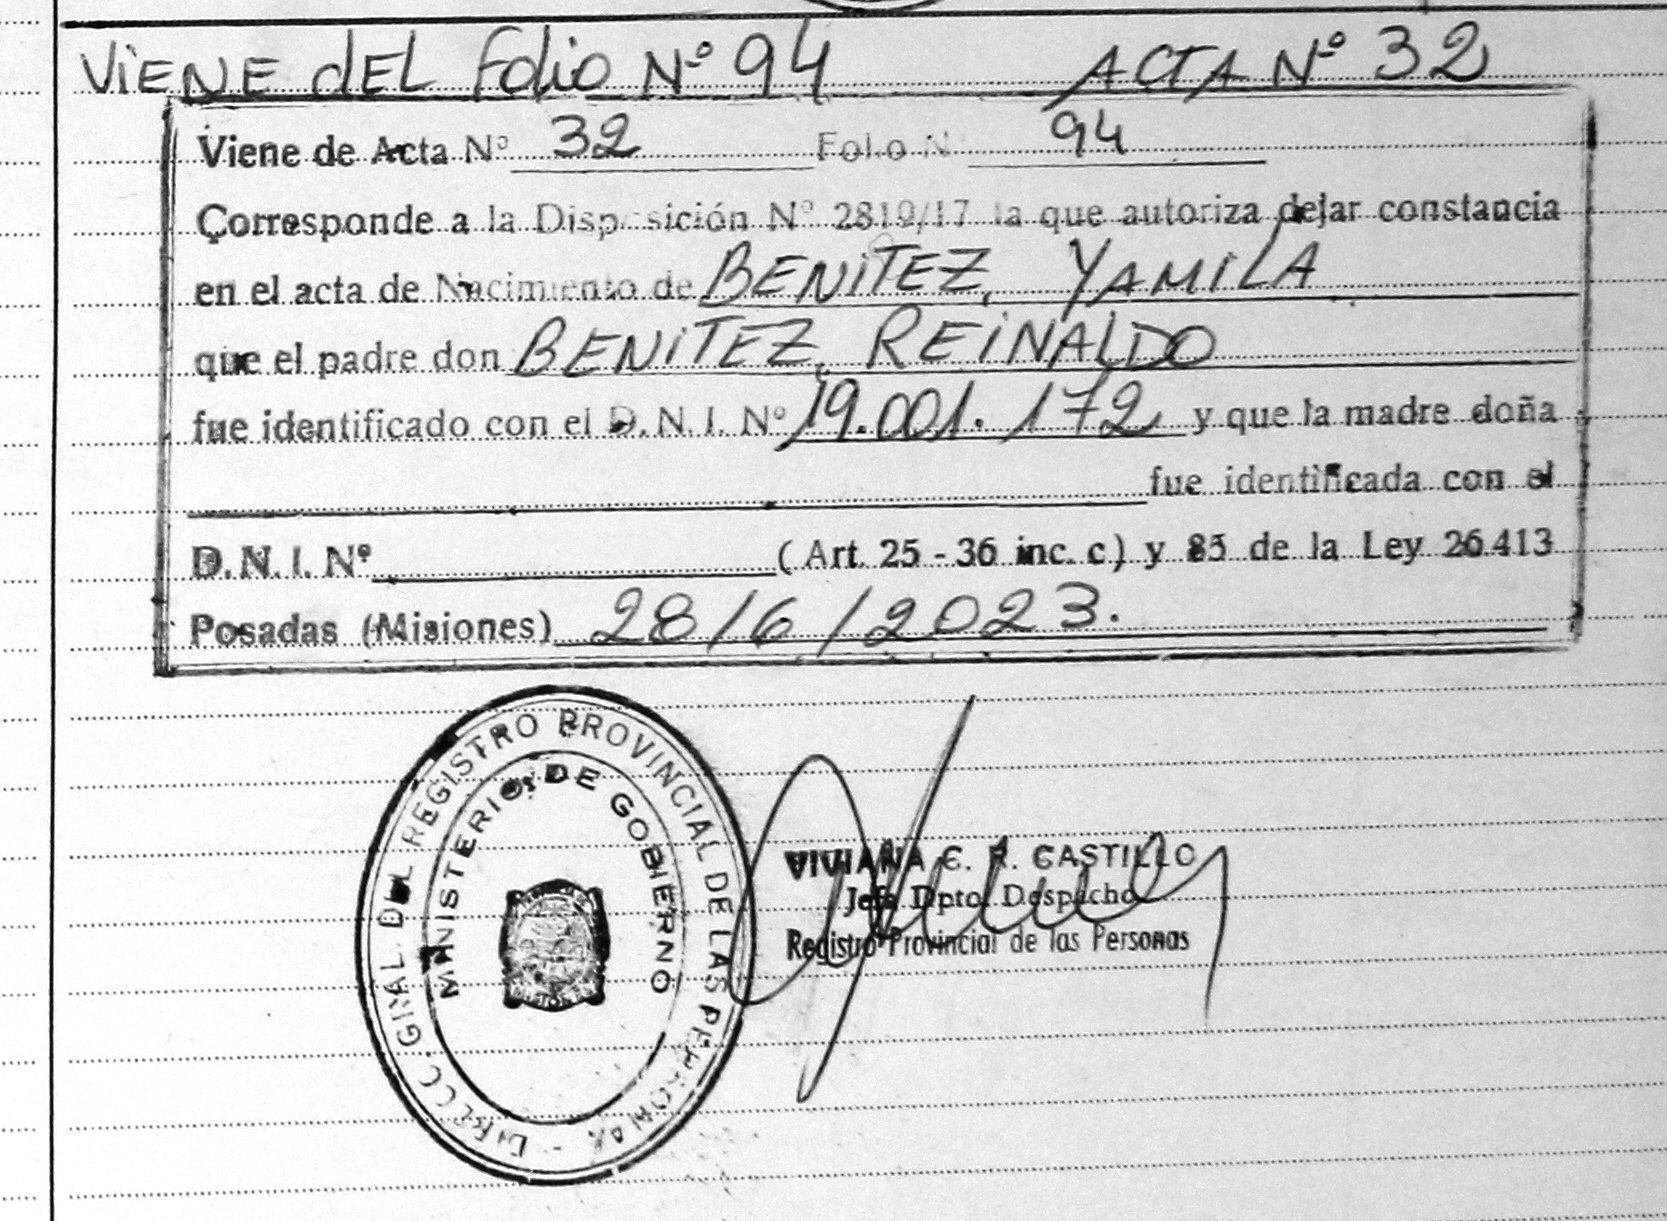 ViENE dEL Folio Nº 94 ACTA Nº 32
Viene de Acta Nº 32 Folio N 94
Corresponde a la Disposición Nº 2819/17 la que autoriza dejar constancia
en el acta de Nacimiento de BENiTEZ, YAMiLA
que el padre don BENiTEZ, REiNALDO
fue identificado con el D.N.I. Nº 19.001.172 y que la madre doña
fue identificada con el
D.N.I. Nº (Art. 25 - 36 inc. c) y 85 de la Ley 26413
Posadas (Misiones) 28/6/2023.
DIRECC. GRAL DEL REGISTRO PROVINCIAL DE LAS PERSONAS -
MINISTERIO DE GOBIERNO
VIVIANA C. R. CASTILLO
Jefa Dpto. Despacho
Registro Provincial de las Personas